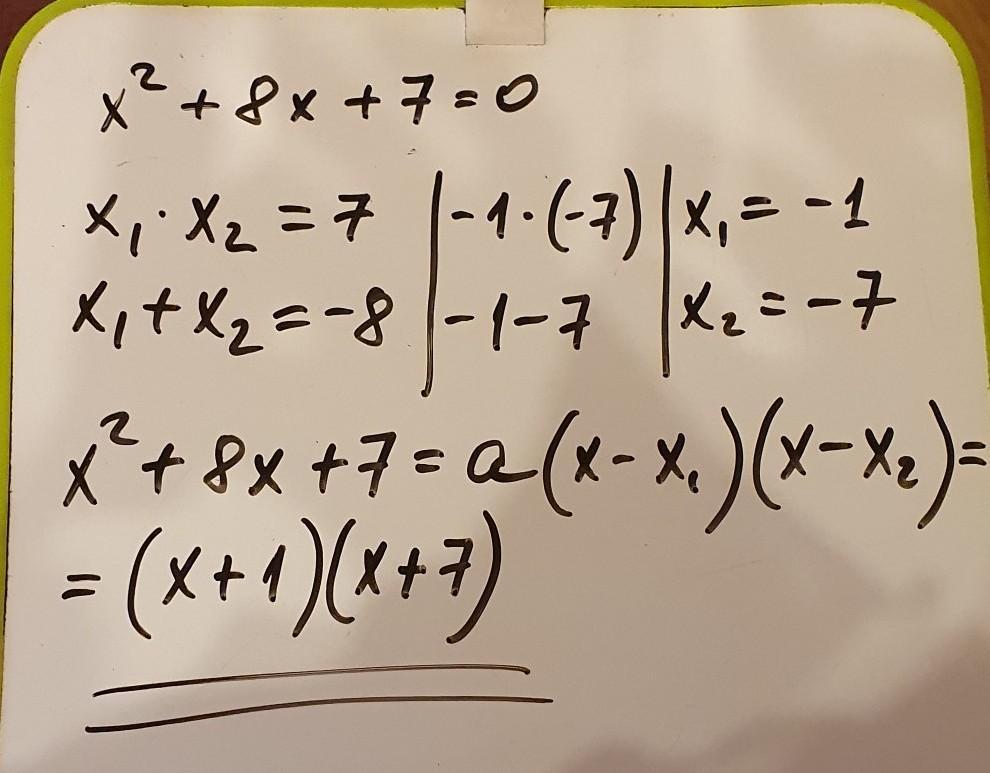 x² + 8x + 7 = 0
x₁ · x₂ = 7 | -1 · (-7) | x₁ = -1
x₁ + x₂ = -8 | -1 - 7 | x₂ = -7
x² + 8x + 7 = a(x - x₁)(x - x₂) =
= (x + 1)(x + 7)